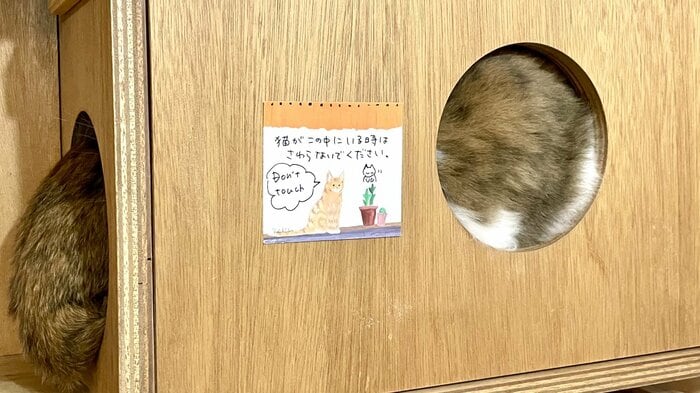 猫がこの中にいる時は
さわらないでください。
Don't
touch